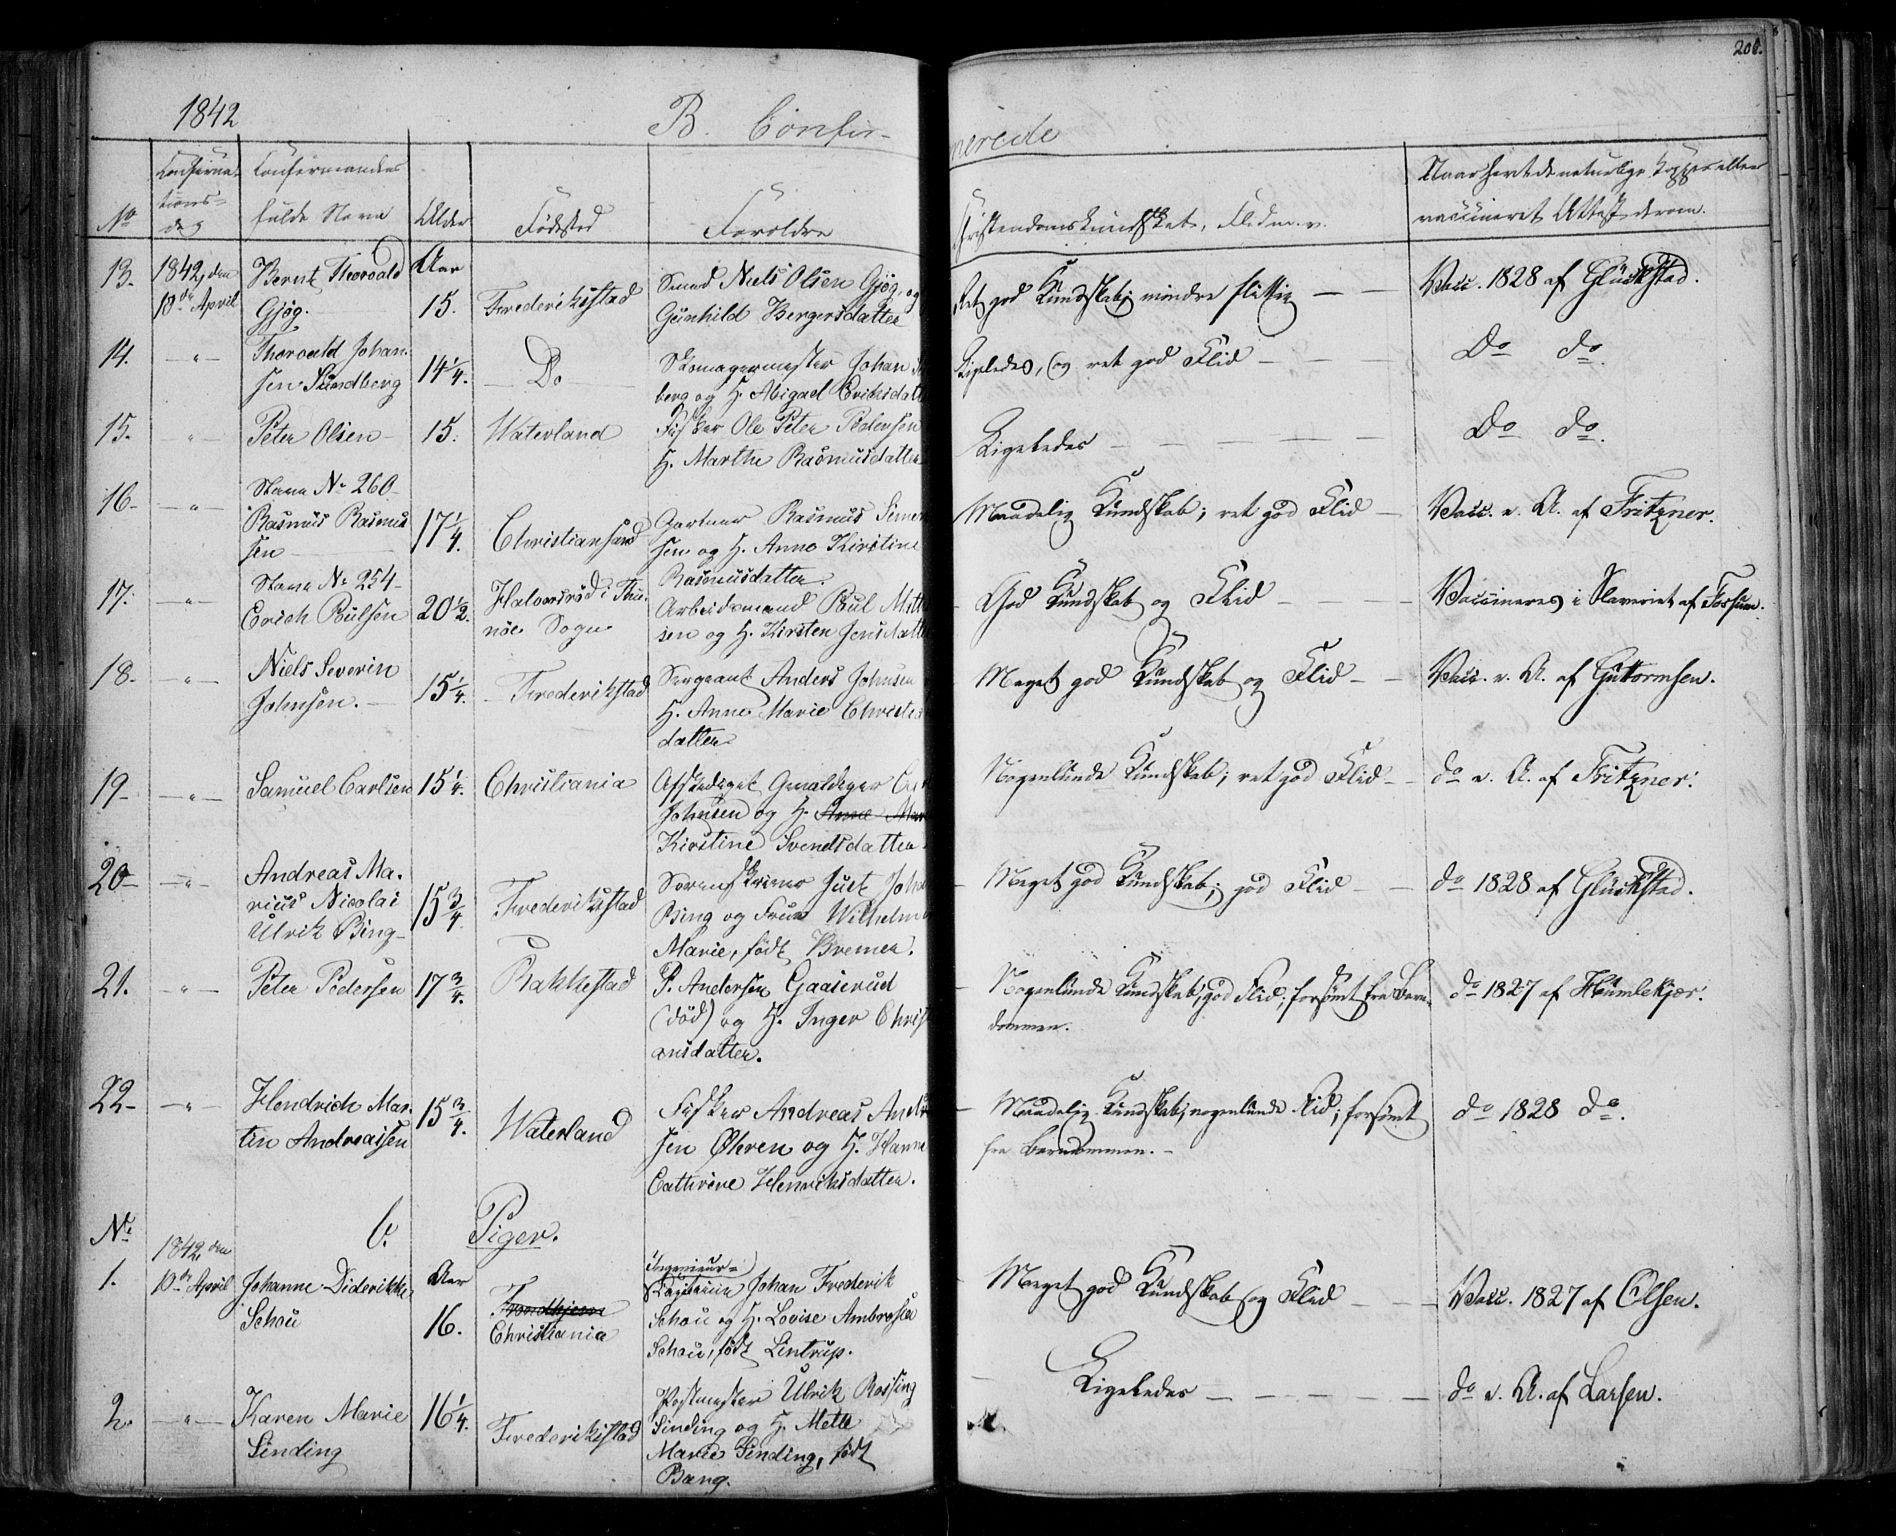 1842
B. Confir-
merede
208.
No
Confirma-
tions-
dag
Confirmandens
fulde Navn
Alder
Fødested
Forældre
Christendomskundskab, Flid m. v.
Naar havt de naturlige Kopper eller
vaccineret Attest derom.
13.
1842, den
10de April
Bernt Thorvald
Gjøg.
Aar
15.
Frederikstad
Smed Niels Olsen Gjøg og
Gunhild Bergersdatter
Ret god Kundskab; mindre flittig — —
Vacc. 1828 af Glückstad.
14.
— " —
Thorvald Johan-
sen Sundberg
14 1/4.
— Do
Skomagermester Johan
berg og H. Abigael Eriksdatt
Ligeledes, og ret god Flid — —
Do do.
15.
"
Peter Olsen —
15.
Waterland
Fisker Ole Peter Pedersen
H. Marthe Rasmusdatter
Ligeledes — — — — — —
Do do.
16-
— " —
Slave No 260-
Rasmus Rasmus
sen —
17 1/4.
Christiansand
Gartner Rasmus Simen
sen og H. Anne Kirstine
Rasmusdatter.
Maadelig Kundskab; ret god Flid —
Vacc. e. A. af Fritzner.
17.
— " —
Slave No 254-
Erich Poulsen
20 1/2.
Halvorsrød i Thu-
nøe Sogn
Arbeidsmand Poul Math
sen og H. Kirsten Jensdatte
- God Kundskab og Flid — — —
Vaccineres i Slaveriet af Fossum.
18.
— " —
Niels Severin
Johnsen. —
15 1/4.
- Frederikstad
Sergeant Anders Johnsen
H. Anne Marie Christi
datter
Meget god Kundskab og Flid — —
Vacc. e. A. af Guttormsen.
19-
— " —
Samuel Carlsen
15 1/4.
Christiania
Afskediget Gevaldiger
Johnsen og H. Anne Mar
Kirstine Svendsdatter
Nogenlunde Kundskab; ret god Flid — —
do e. A. af Fritzner.
20-
— " —
Andreas Ma-
rius Nicolai
Ulrik Bing-
15 3/4
Frederikstad
Sorenskriver Just John
Bing og Frue Wilhelm
Marie, født Bremer.
- Meget god Kundskab; god Flid — —
do 1828 af Glückstad.
21.
— " —
Peter Pedersen
17 3/4.
Rakkestad
P. Andersen Gaaserud
(død) og H. Inger Chris
ansdatter.
- Nogenlunde Kundskab; god Flid; forsømt fra Barn-
dommen.
do 1827 af Humlekjær.
22-
— " —
Hendrich Mar-
tin Andreasen
15 3/4.
Waterland
Fisker Andreas Andr
sen Øhren og H. Hanne
Cathrine Henriksdatter.
- Maadelig Kundskab; nogenlunde Flid; forsømt
fra Barndommen. —
do 1828 do.
No
b. Piger.
1.
1842, den
10de April
Johanne Diderikke
Schou
Aar
16.
Trondhjem
Christiania
Ingenieur-
Capitain Johan Frederik
Schou og H. Lovise Ambrosia
Schou, født Lintrup.
- Meget god Kundskab og Flid — — —
Vacc. 1827 af Olsen.
2.
— " —
Karen Marie
Sinding
16 1/4.
Frederikstad
Postmester Ulrik Rossing
Sinding og H. Mette
Marie Sinding, født
Bang.
Ligeledes — — — — —
do e. A. af Larsen.